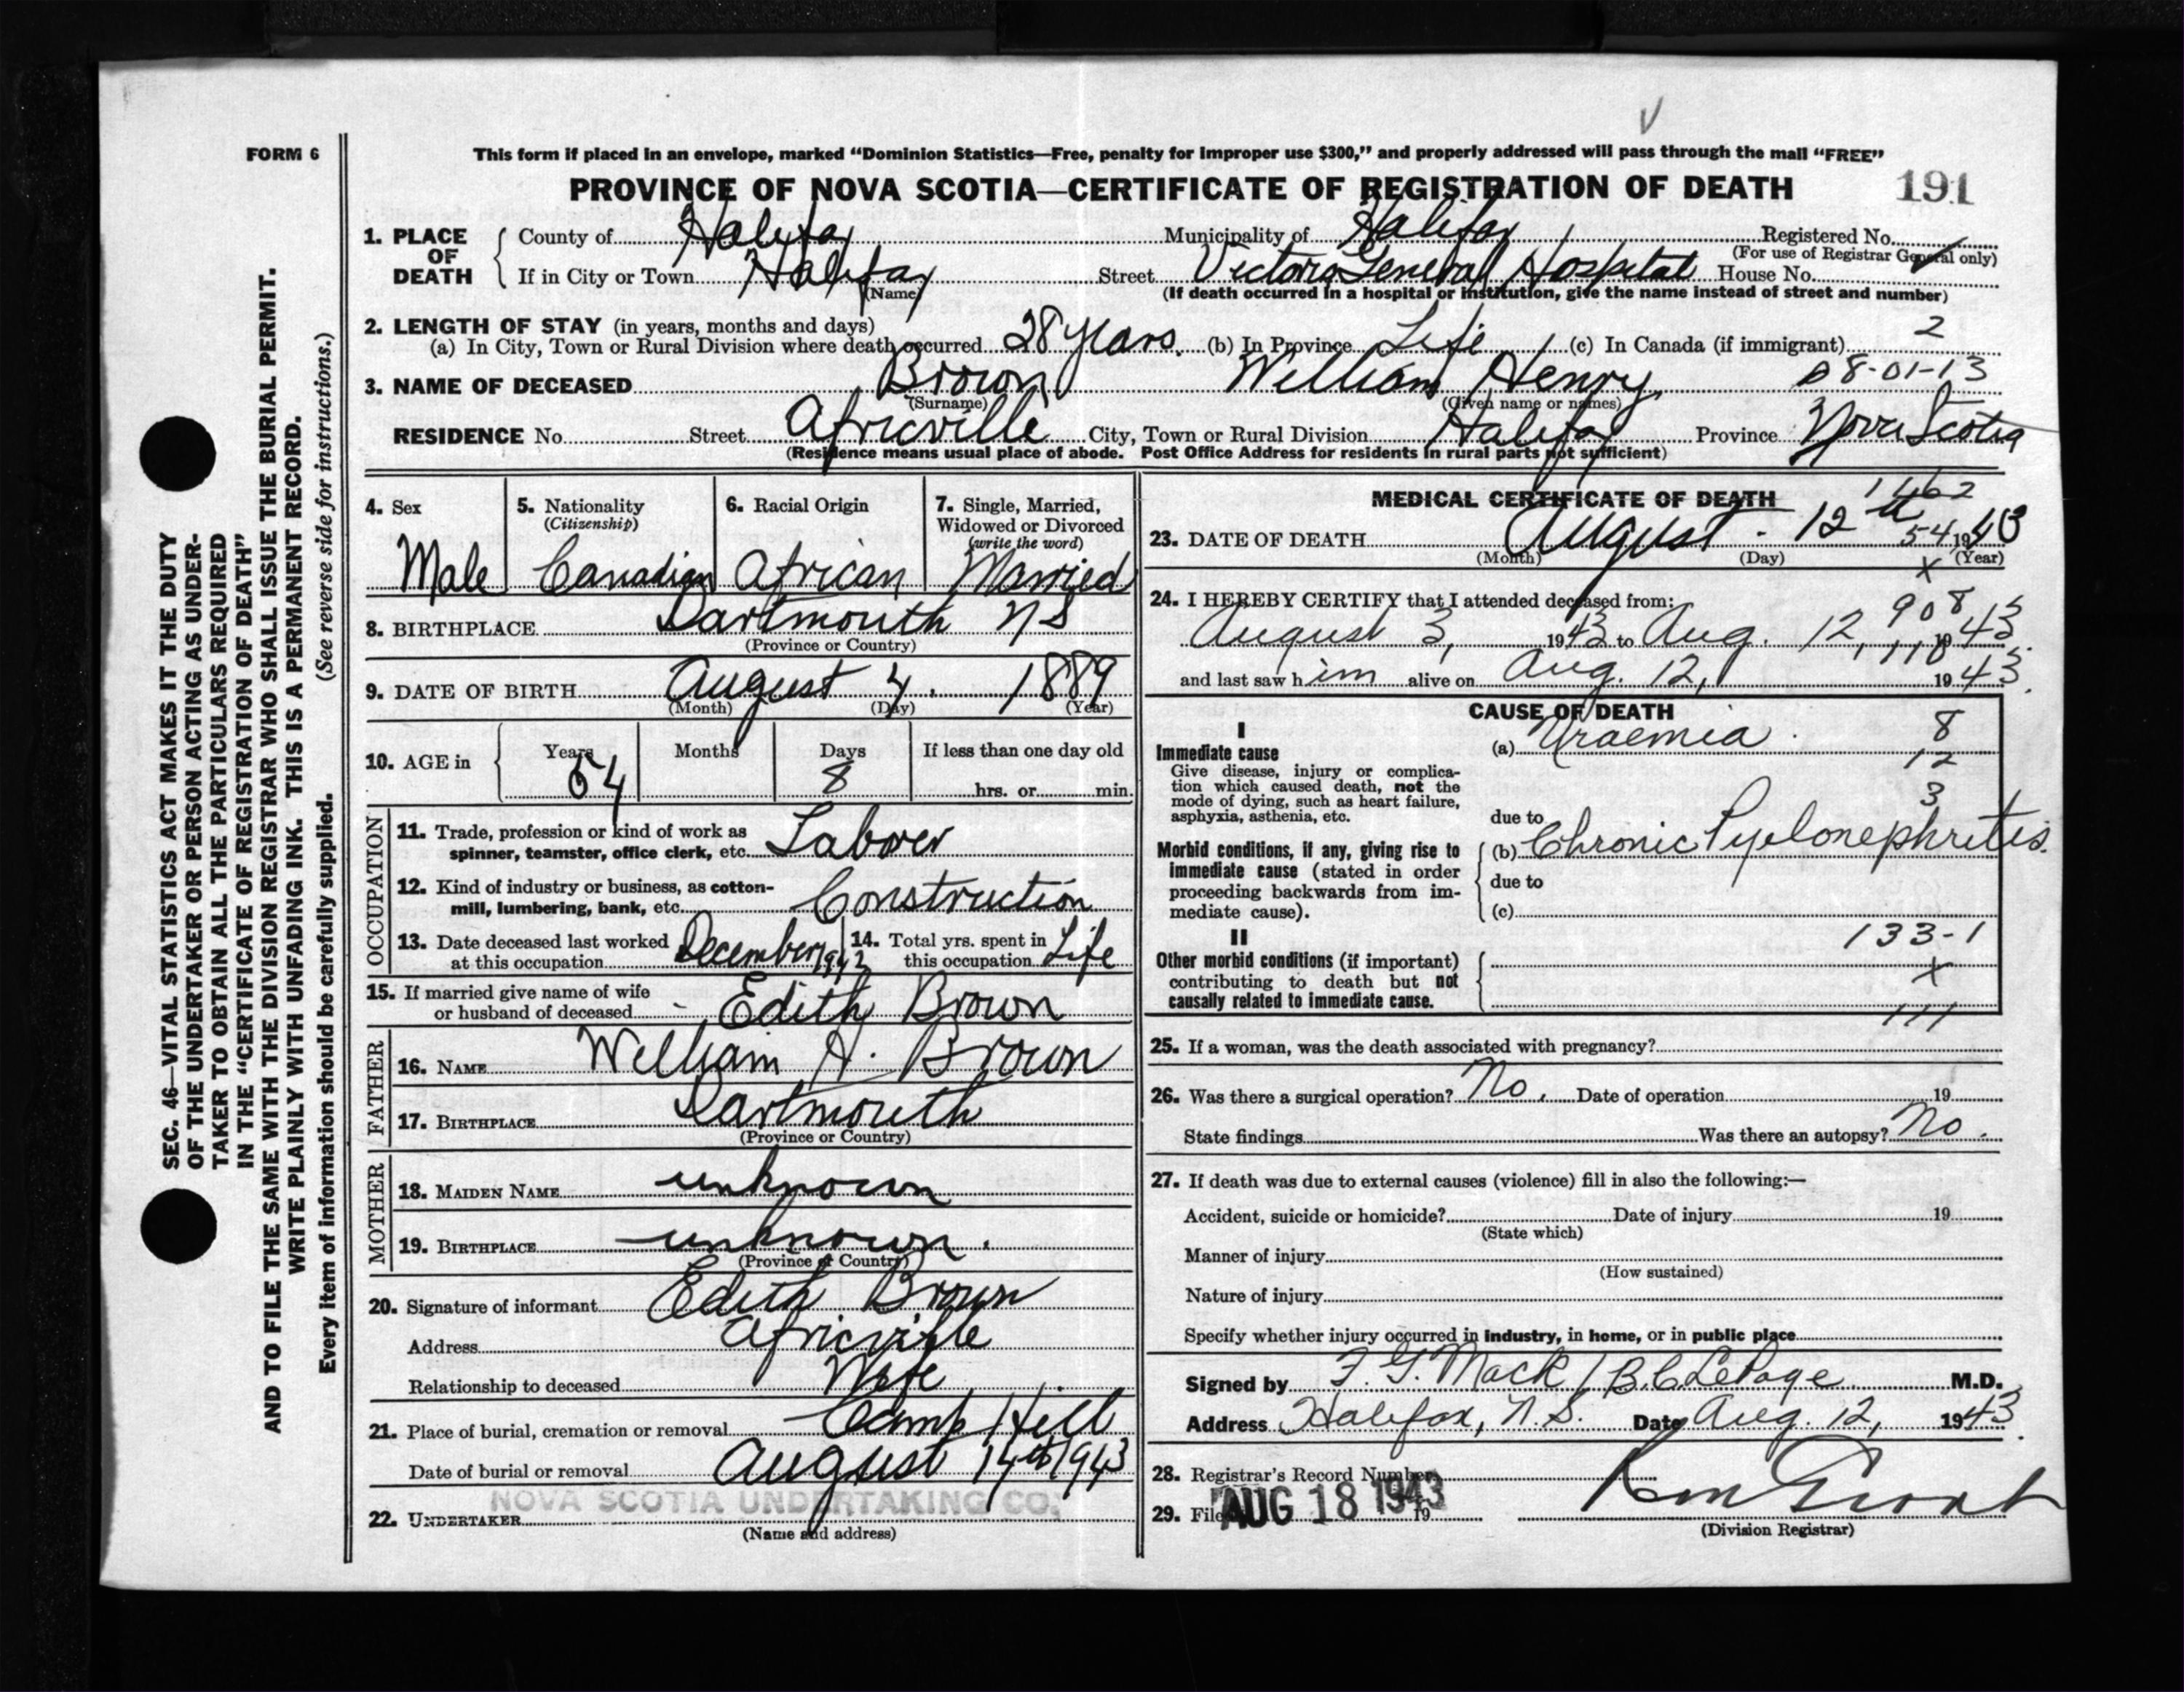 FORM 6
This form if placed in an envelope, marked "Dominion Statistics—Free, penalty for improper use $300," and properly addressed will pass through the mail "FREE"
PROVINCE OF NOVA SCOTIA—CERTIFICATE OF REGISTRATION OF DEATH 191
1. PLACE OF DEATH County of Halifax Municipality of Halifax Registered No.
(For use of Registrar General only)
If in City or Town Halifax Street Victoria General Hospital House No.
(Name) (If death occurred in a hospital or institution, give the name instead of street and number)
2. LENGTH OF STAY (in years, months and days)
(a) In City, Town or Rural Division where death occurred 28 years. (b) In Province Life (c) In Canada (if immigrant) 2
3. NAME OF DECEASED Brown William Henry 08-01-13
(Surname) (Given name or names)
RESIDENCE No. Street Africville City, Town or Rural Division Halifax Province Nova Scotia
(Residence means usual place of abode. Post Office Address for residents in rural parts not sufficient)
4. Sex Male
5. Nationality (Citizenship) Canadian
6. Racial Origin African
7. Single, Married, Widowed or Divorced (write the word) Married
8. BIRTHPLACE Dartmouth NS
(Province or Country)
9. DATE OF BIRTH August 4. 1889
(Month) (Day) (Year)
10. AGE in Years 54 Months Days 8 If less than one day old hrs. or min.
OCCUPATION
11. Trade, profession or kind of work as
spinner, teamster, office clerk, etc. Laborer
12. Kind of industry or business, as cotton-
mill, lumbering, bank, etc. Construction
13. Date deceased last worked
at this occupation December 1942
14. Total yrs. spent in
this occupation Life
15. If married give name of wife
or husband of deceased Edith Brown
FATHER
16. NAME William H. Brown
17. BIRTHPLACE Dartmouth
(Province or Country)
MOTHER
18. MAIDEN NAME unknown
19. BIRTHPLACE unknown.
(Province or Country)
20. Signature of informant Edith Brown
Address Africville
Relationship to deceased Wife
21. Place of burial, cremation or removal Camp Hill
Date of burial or removal August 14th 1943
22. UNDERTAKER NOVA SCOTIA UNDERTAKING CO.
(Name and address)
MEDICAL CERTIFICATE OF DEATH 1462
23. DATE OF DEATH August - 12th 54 1943
(Month) (Day) (Year)
x
24. I HEREBY CERTIFY that I attended deceased from:
908
August 3, 1943 to Aug. 12, 1943
and last saw him alive on Aug. 12, 1943.
CAUSE OF DEATH
I
Immediate cause (a) Uraemia. 8
Give disease, injury or complica-
tion which caused death, not the
mode of dying, such as heart failure,
asphyxia, asthenia, etc.
12
3
due to
Morbid conditions, if any, giving rise to
immediate cause (stated in order
proceeding backwards from im-
mediate cause).
(b) Chronic Pyelonephritis.
due to
(c)
II 133-1
Other morbid conditions (if important)
contributing to death but not
causally related to immediate cause.
x
111
25. If a woman, was the death associated with pregnancy?
26. Was there a surgical operation? No. Date of operation 19
State findings Was there an autopsy? No.
27. If death was due to external causes (violence) fill in also the following:—
Accident, suicide or homicide? Date of injury 19
(State which)
Manner of injury
(How sustained)
Nature of injury
Specify whether injury occurred in industry, in home, or in public place
Signed by F. G. Mack / B.C LePage M.D.
Address Halifax, N.S. Date Aug. 12, 1943.
28. Registrar's Record Number
29. File AUG 18 1943 19
(Division Registrar)
SEC. 46—VITAL STATISTICS ACT MAKES IT THE DUTY
OF THE UNDERTAKER OR PERSON ACTING AS UNDER-
TAKER TO OBTAIN ALL THE PARTICULARS REQUIRED
IN THE "CERTIFICATE OF REGISTRATION OF DEATH"
AND TO FILE THE SAME WITH THE DIVISION REGISTRAR WHO SHALL ISSUE THE BURIAL PERMIT.
WRITE PLAINLY WITH UNFADING INK. THIS IS A PERMANENT RECORD.
Every item of information should be carefully supplied. (See reverse side for instructions.)